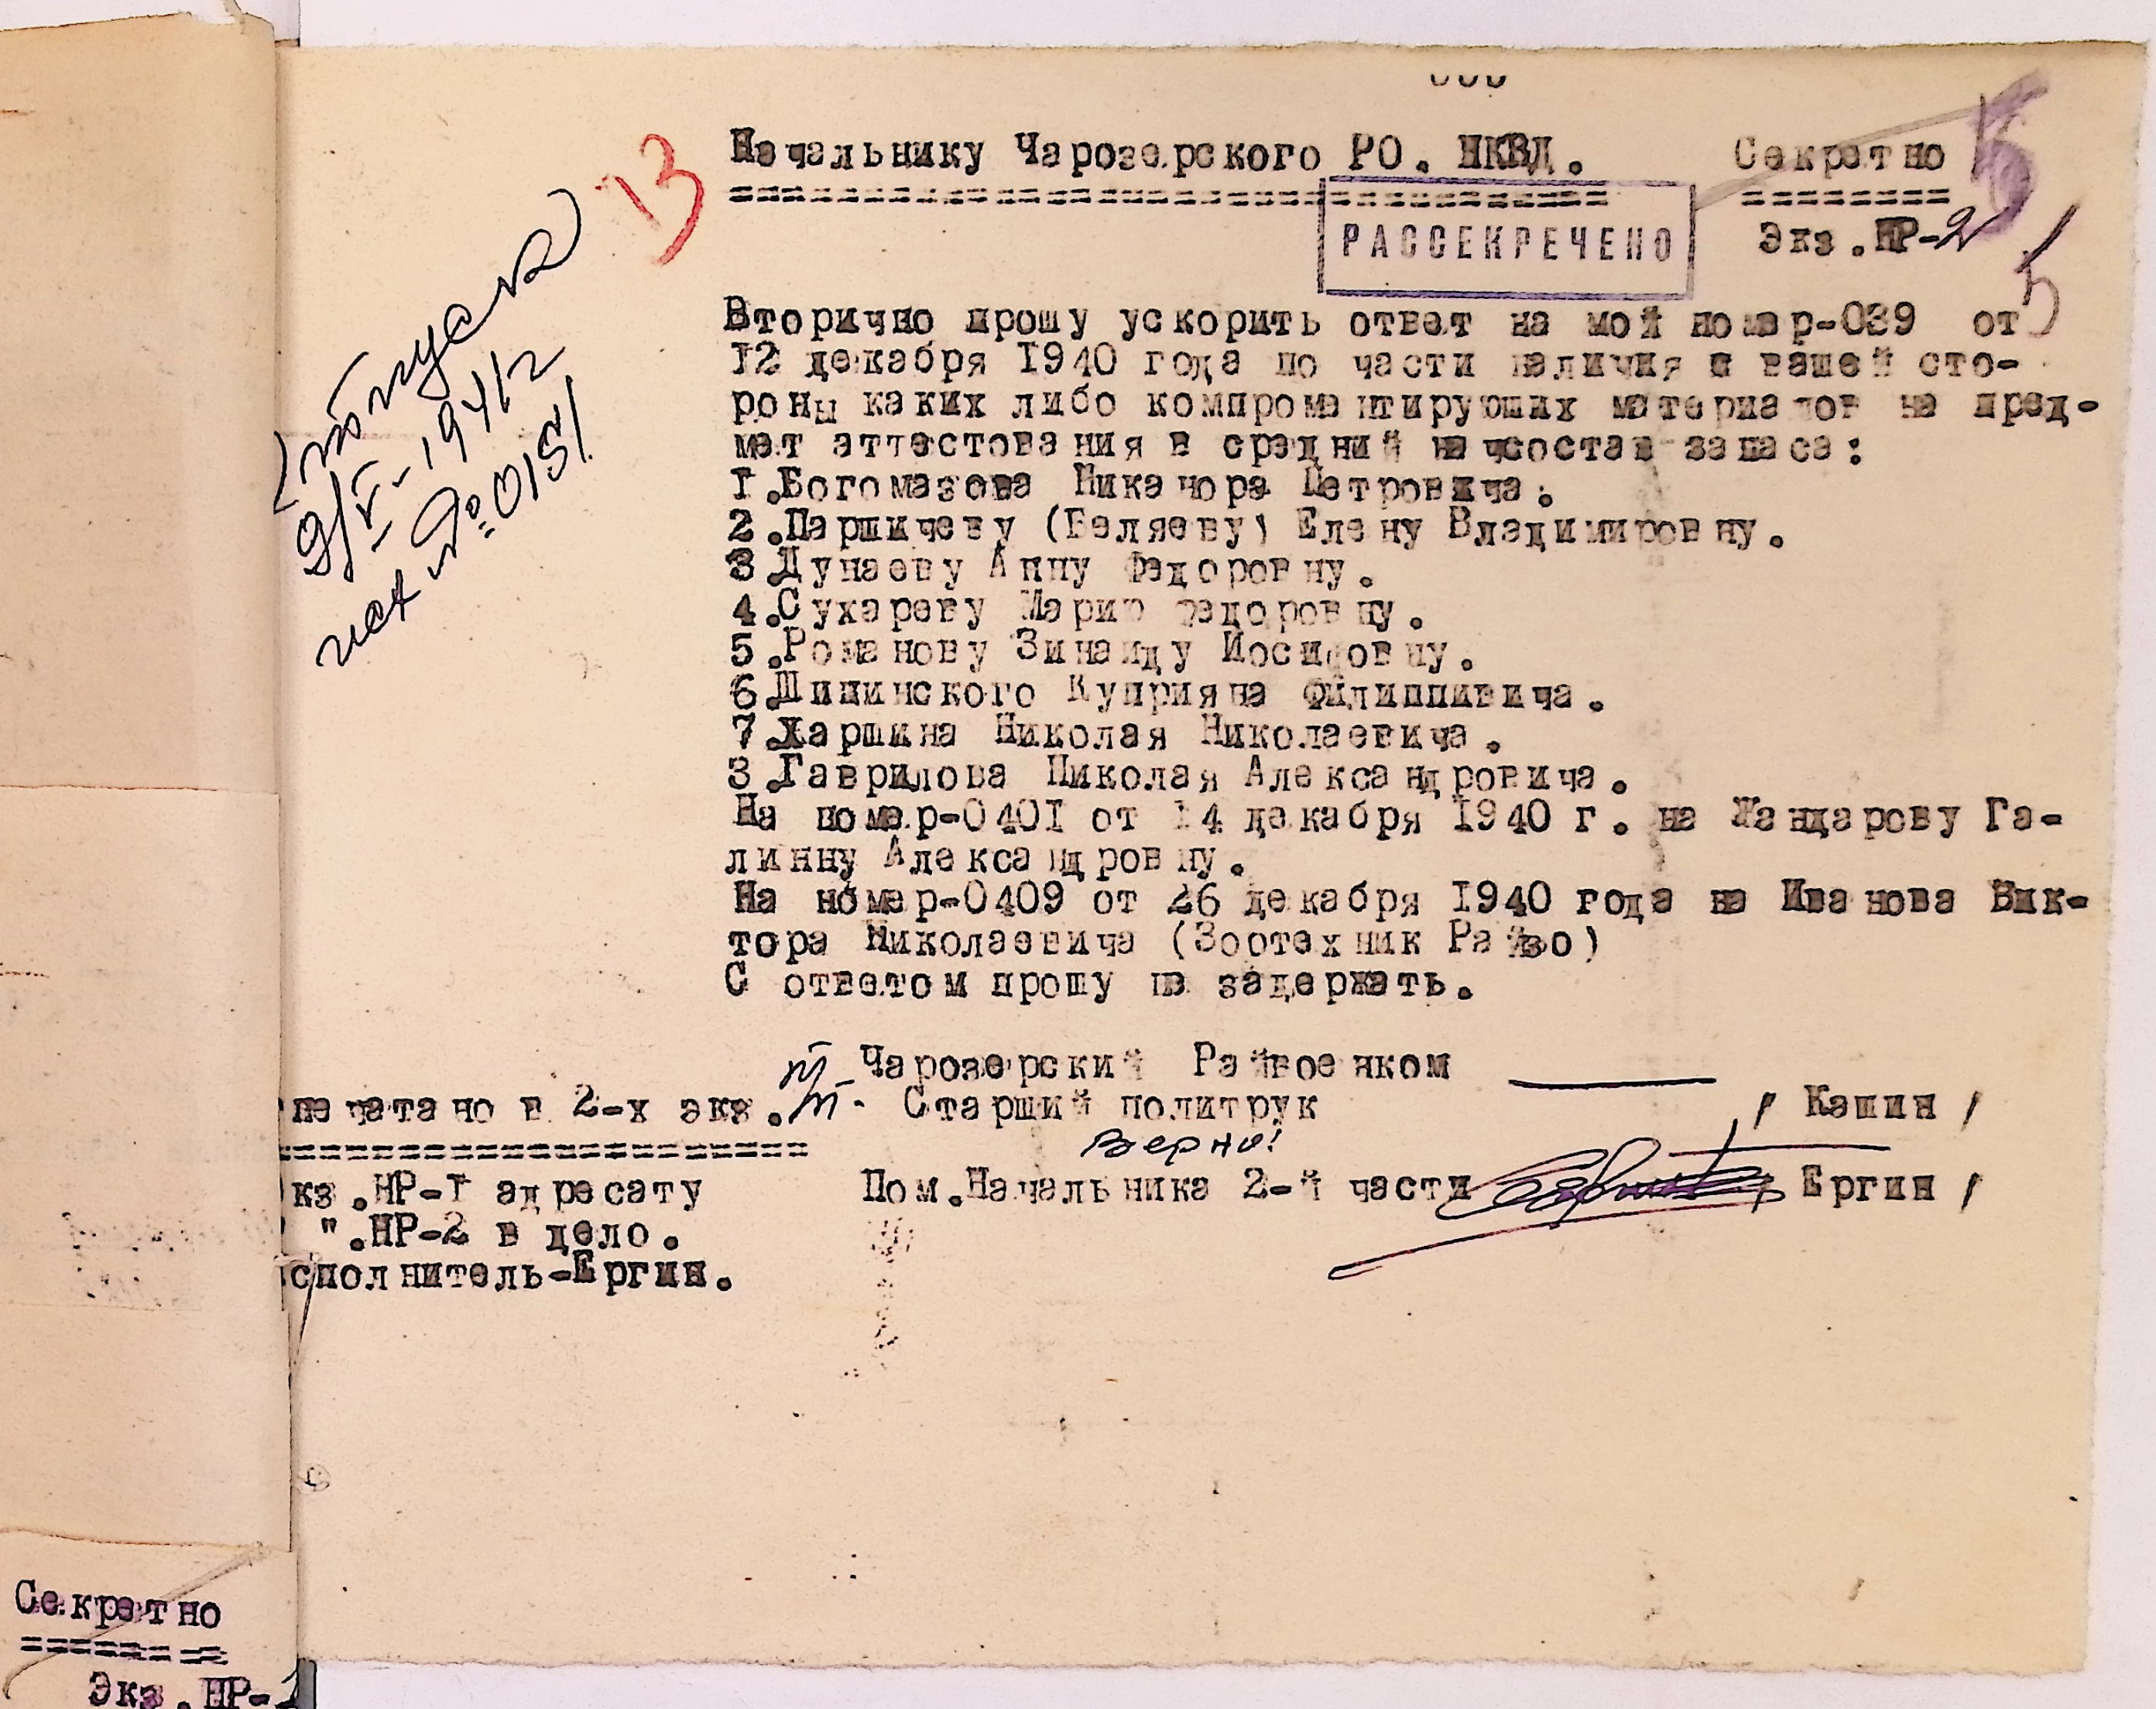 Начальнику Чарозерского РО. НКВД. Секретно
РАССЕКРЕЧЕНО
Экз.НР-2
13
Вторично прошу ускорить ответ на мой номер-039 от
12 декабря 1940 года по части наличия с вашей сто-
роны каких либо компромантирующих материалов на пред-
мет аттестования в средний начсостав запаса:
1.Богомазова Никанора Петровича.
2.Паршичеву (Беляеву) Елену Владимировну.
3.Дунаеву Анну Федоровну.
4.Сухареву Марию Федоровну.
5.Романову Зинаиду Иосифовну.
6.Шипинского Куприяна Филиппивича.
7.Харшина Николая Николаевича.
3.Гаврилова Николая Александровича.
На номер-0401 от 14 декабря 1940 г. на Жандарову Га-
линну Александровну.
На номер-0409 от 26 декабря 1940 года на Иванова Вик-
тора Николаевича (Зоотехник Райзо)
С ответом прошу не задержать.
9/V-1941г
исх №0151
Чарозерский Райвоенком
печатано в 2-х экз. Старший политрук / Кашин /
Верно!
кз.НР-1 адресату Пом.Начальника 2-й части / Ергин /
".НР-2 в дело.
сполнитель-Ергин.
Секретно
Экз.НР-1